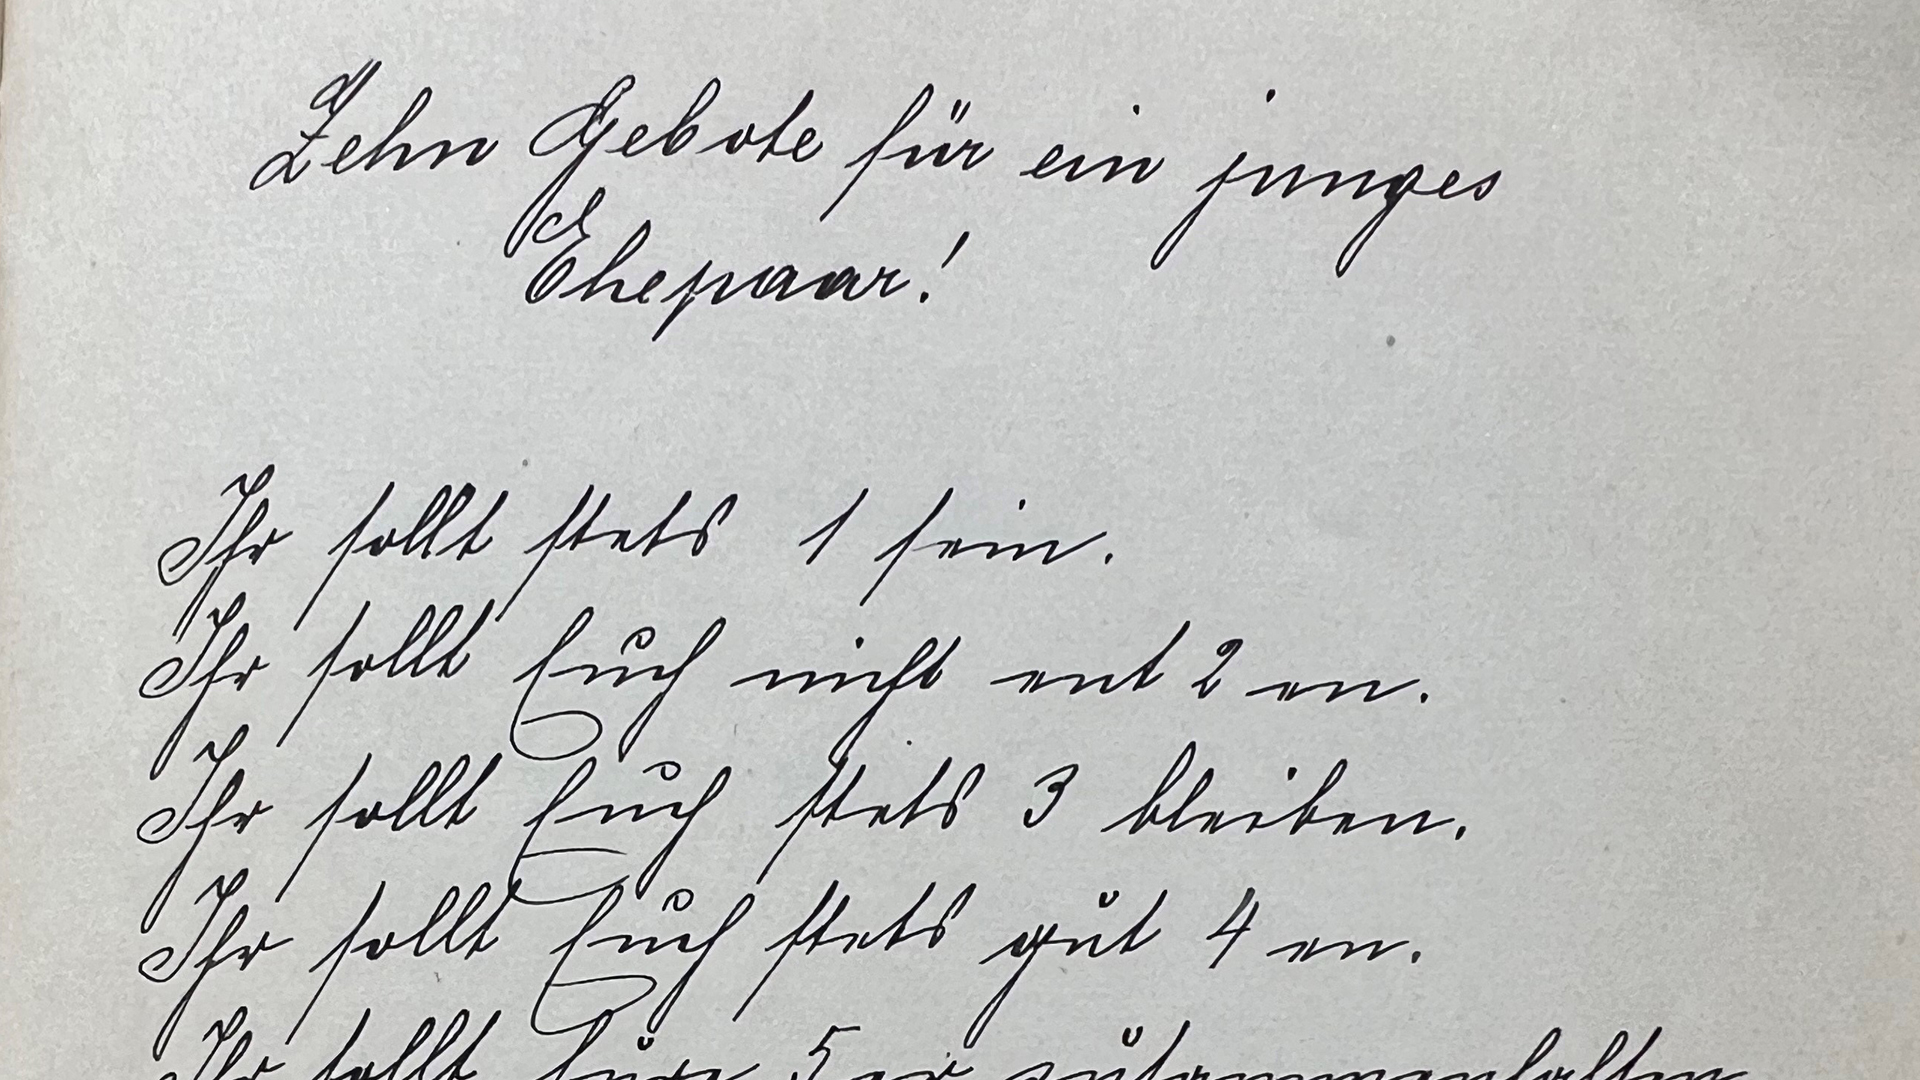 Zehn Gebote für ein junges
Ehepaar!
Ihr sollt stets 1 sein.
Ihr sollt Euch nicht ent 2 en.
Ihr sollt Euch stets 3 bleiben.
Ihr sollt Euch stets gut 4 en.
Ihr sollt Eure 5 er zusammenhalten